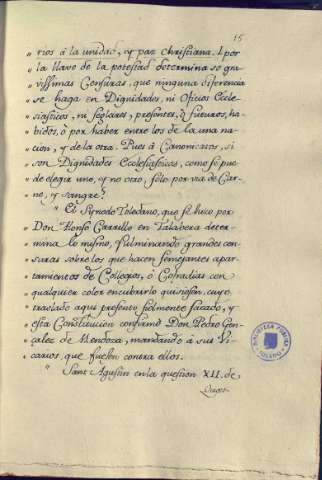 15
„ rios á la unidad, y paz Christiana. I por
„ la llave de la potestad determina so gra-
„ vissimas Censuras, que ninguna diferencia
„ se haga en Dignidades, ni Oficios Ecle-
„ siasticos, ni seglares, presentes, ò futuros, ha-
„ bidos, ò por haber entre los de la una na-
„ cion, y de la otra. Pues á Canonicatos, si
„ son Dignidades Ecclesiasticas, como se pue-
„ de elegir uno, y no otro, solo por via de Car-
„ ne, y sangre?
„ El Synodo Toledano, que se hizo por
„ Don Alonso Carrillo en Talabera deter-
„ mina lo mismo, fulminando grandes cen-
„ suras sobre los que hacen semejantes apar-
„ tamientos de Colegios, ò Cofradias con
„ qualquier color encubrirlo quisiesen, cuyo
„ traslado aqui presento fielmente sacado, y
„ esta Constitucion confirmó Don Pedro Gon-
„ zalez de Mendoza, mandando á sus Vi-
„ carios, que fuesen contra ellos.
„ Sant Agustin en la question XII. de
BIBLIOTECA PUBLICA
TOLEDO